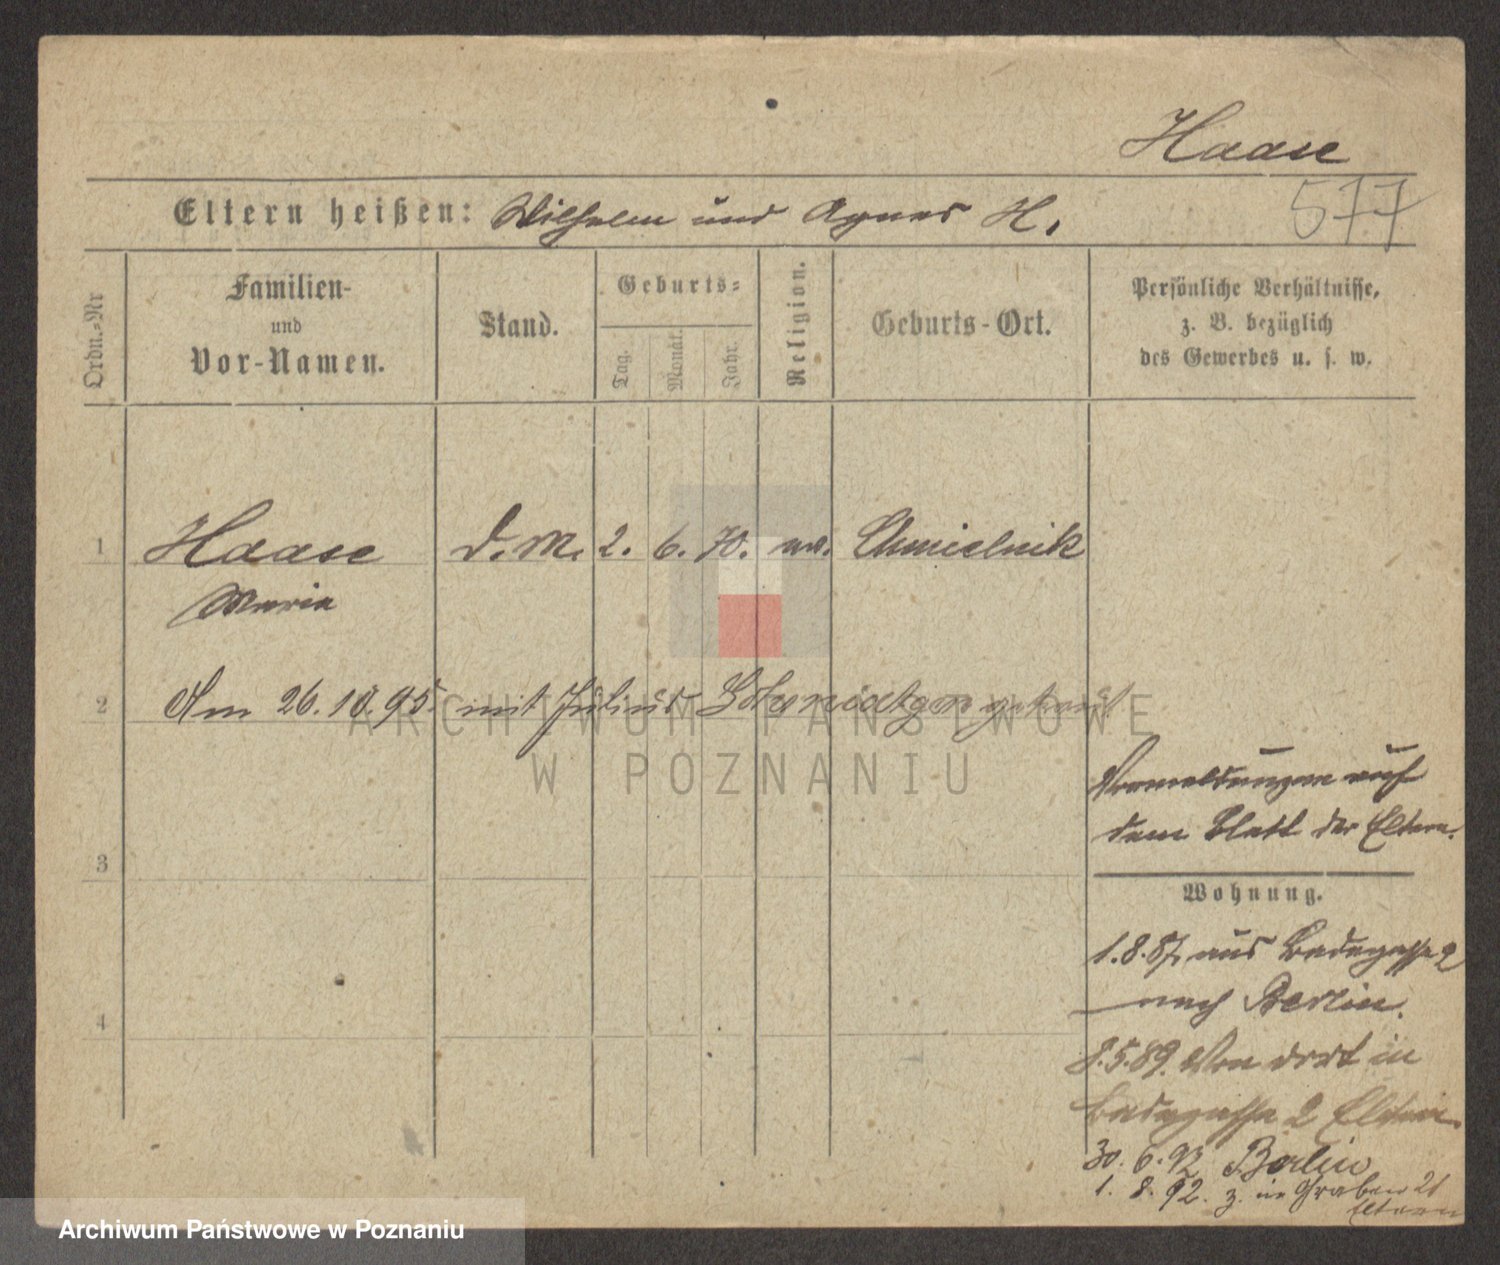 Haase
577
Eltern heißen: Wilhelm und Agnes H.
Ordn.=Nr
Familien-
und
Vor-Namen.
Stand.
Geburts=
Tag.
Monat.
Jahr.
Religion.
Geburts-Ort.
Persönliche Verhältnisse,
z. B. bezüglich
des Gewerbes u. s. w.
1 Haase D. M. 2. 6. 70. ev. Chmielnik
Maria
2 Am 26.10.95. mit Julius getraut
ARCHIWUM PAŃSTWOWE
W POZNANIU
Anmeldungen auf
dem Blatt der Eltern.
3
Wohnung.
1.8.87. aus Badegasse 2
nach Berlin.
4
8.5.89. Von dort in
Badegasse 2 Eltern
30. 6. 92 Berlin
1. 8. 92. z. in Graben 21
Eltern
Archiwum Państwowe w Poznaniu